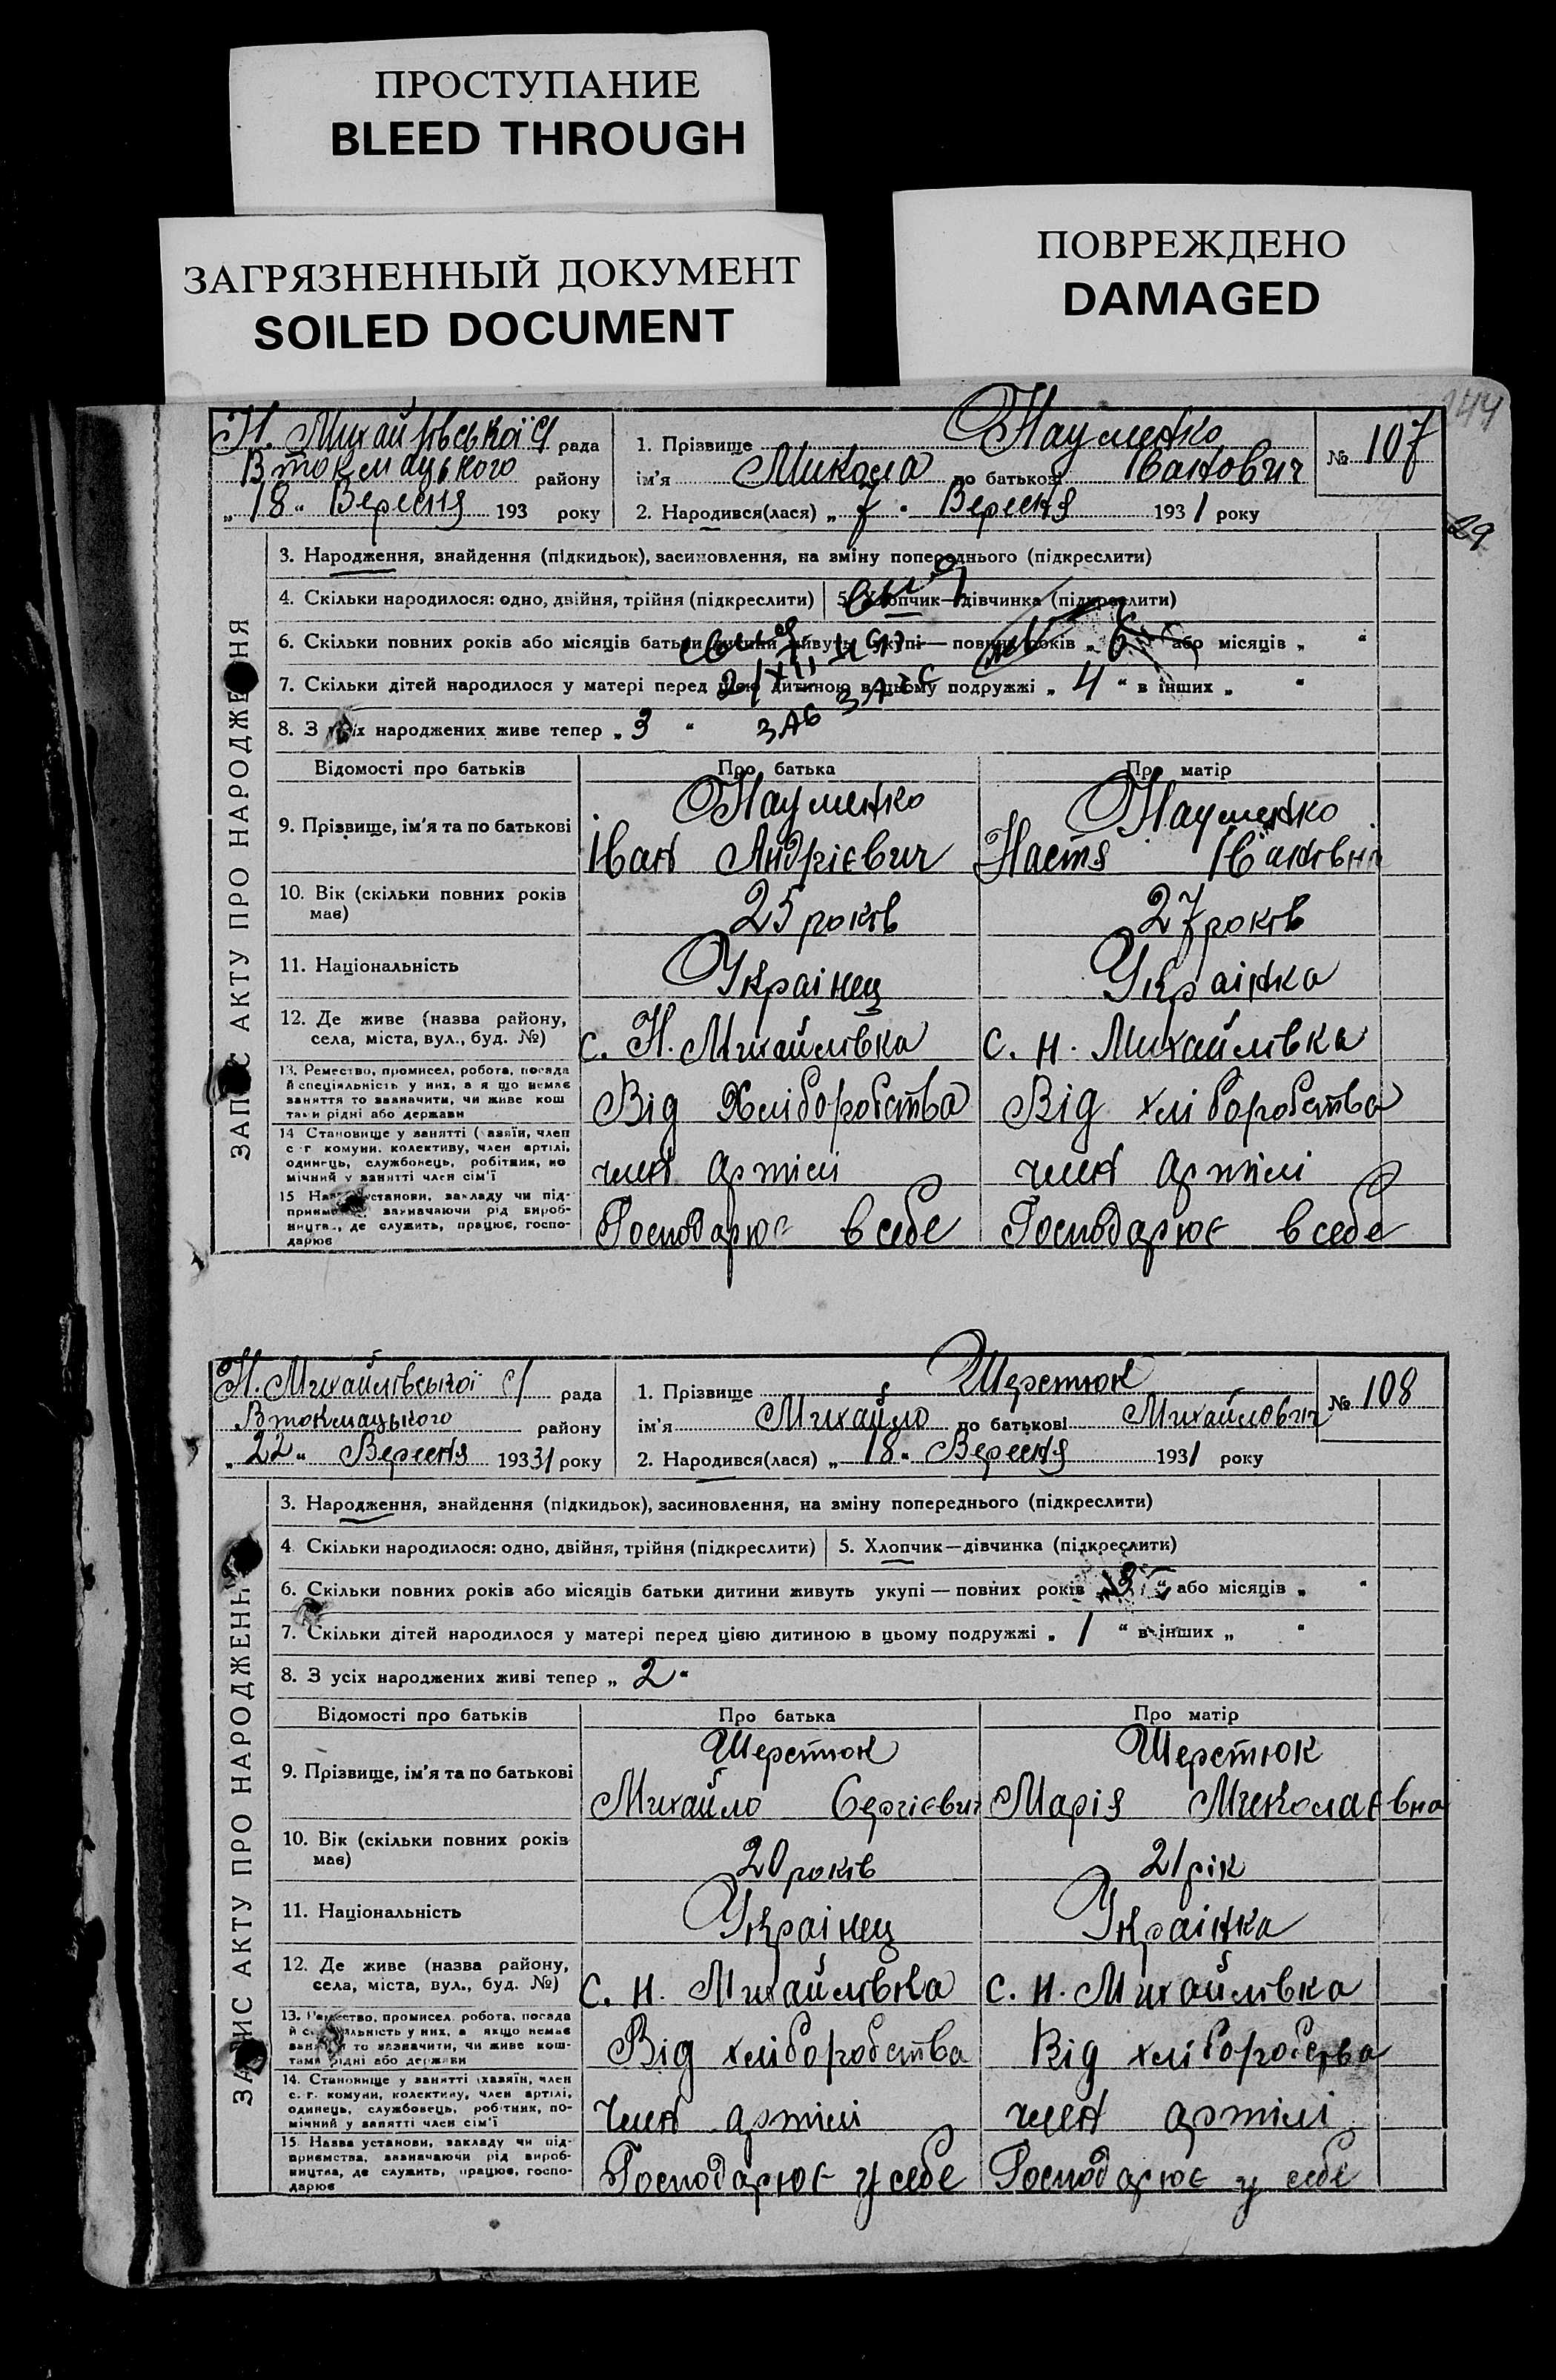 ПРОСТУПАНИЕ
BLEED THROUGH
ЗАГРЯЗНЕННЫЙ ДОКУМЕНТ
SOILED DOCUMENT
ПОВРЕЖДЕНО
DAMAGED
144
Н. Михайлівської с/ рада
В токмацького району
„ 18 “ Вересня 193 року
1. Прізвище Науменко
ім'я Микола по батькові Іванович
2. Народився(лася) „ 7 “ Вересня 1931 року
№ 107
29
ЗАПИС АКТУ ПРО НАРОДЖЕННЯ
3. Народження, знайдення (підкидьок), засиновлення, на зміну попереднього (підкреслити)
4. Скільки народилося: одно, двійня, трійня (підкреслити)
5. Хлопчик—дівчинка (підкреслити)
6. Скільки повних років або місяців батьки дитини живуть укупі — повних років „ 6 “ або місяців „ “
7. Скільки дітей народилося у матері перед цією дитиною в цьому подружжі „ 4 “ в інших „ “
8. З усіх народжених живе тепер „ 3 “
Відомості про батьків
Про батька
Про матір
9. Прізвище, ім'я та по батькові
Науменко
Іван Андрієвич
Науменко
Настя Івановна
10. Вік (скільки повних років
має)
25 років
27 років
11. Національність
Украінец
Украінка
12. Де живе (назва району,
села, міста, вул., буд. №)
с. Н. Михайлівка
с. Н. Михайлівка
13. Ремество, промисел, робота, посада
й спеціяльність у них, а я що немає
заняття то зазначити, чи живе кош
тами рідні або держави
Від Хліборобства
Від хліборобства
14 Становище у занятті (хазяїн, член
с г комуни, колективу, член артілі,
одинець, службовець, робітник, по
мічний у занятті член сім'ї
член артілі
член артілі
15 Назва установи, закладу чи під-
приємства, зазначаючи рід вироб-
ництва, де служить, працює, госпо-
дарює
Господарює в себе
Господарює в себе
Н. Михайлівської с/ рада
В токмацького району
„ 22 “ Вересня 19331 року
1. Прізвище Шерстюк
ім'я Михайло по батькові Михайлович
2. Народився(лася) „ 18 “ Вересня 1931 року
№ 108
ЗАПИС АКТУ ПРО НАРОДЖЕНН
3. Народження, знайдення (підкидьок), засиновлення, на зміну попереднього (підкреслити)
4. Скільки народилося: одно, двійня, трійня (підкреслити)
5. Хлопчик—дівчинка (підкреслити)
6. Скільки повних років або місяців батьки дитини живуть укупі — повних років „ 3 “ або місяців „ “
7. Скільки дітей народилося у матері перед цією дитиною в цьому подружжі „ 1 “ в інших „ “
8. З усіх народжених живі тепер „ 2 “
Відомості про батьків
Про батька
Про матір
9. Прізвище, ім'я та по батькові
Шерстюк
Михайло Сергієвич
Шерстюк
Марія Миколаєвна
10. Вік (скільки повних років
має)
20 років
21 рік
11. Національність
Украінец
Украінка
12. Де живе (назва району,
села, міста, вул., буд. №)
с. Н. Михайлівка
с. Н. Михайлівка
13. Ремество, промисел, робота, посада
й спеціяльність у них, а якщо немає
заняття то зазначити, чи живе кош-
тами рідні або держави
Від хліборобства
Від хліборобства
14. Становище у занятті (хазяїн, член
с. г. комуни, колективу, член артілі,
одинець, службовець, робітник, по-
мічний у занятті член сім'ї
член артілі
член артілі
15. Назва установи, закладу чи під-
приємства, зазначаючи рід вироб-
ництва, де служить, працює, госпо-
дарює
Господарює у себе
Господарює у себе